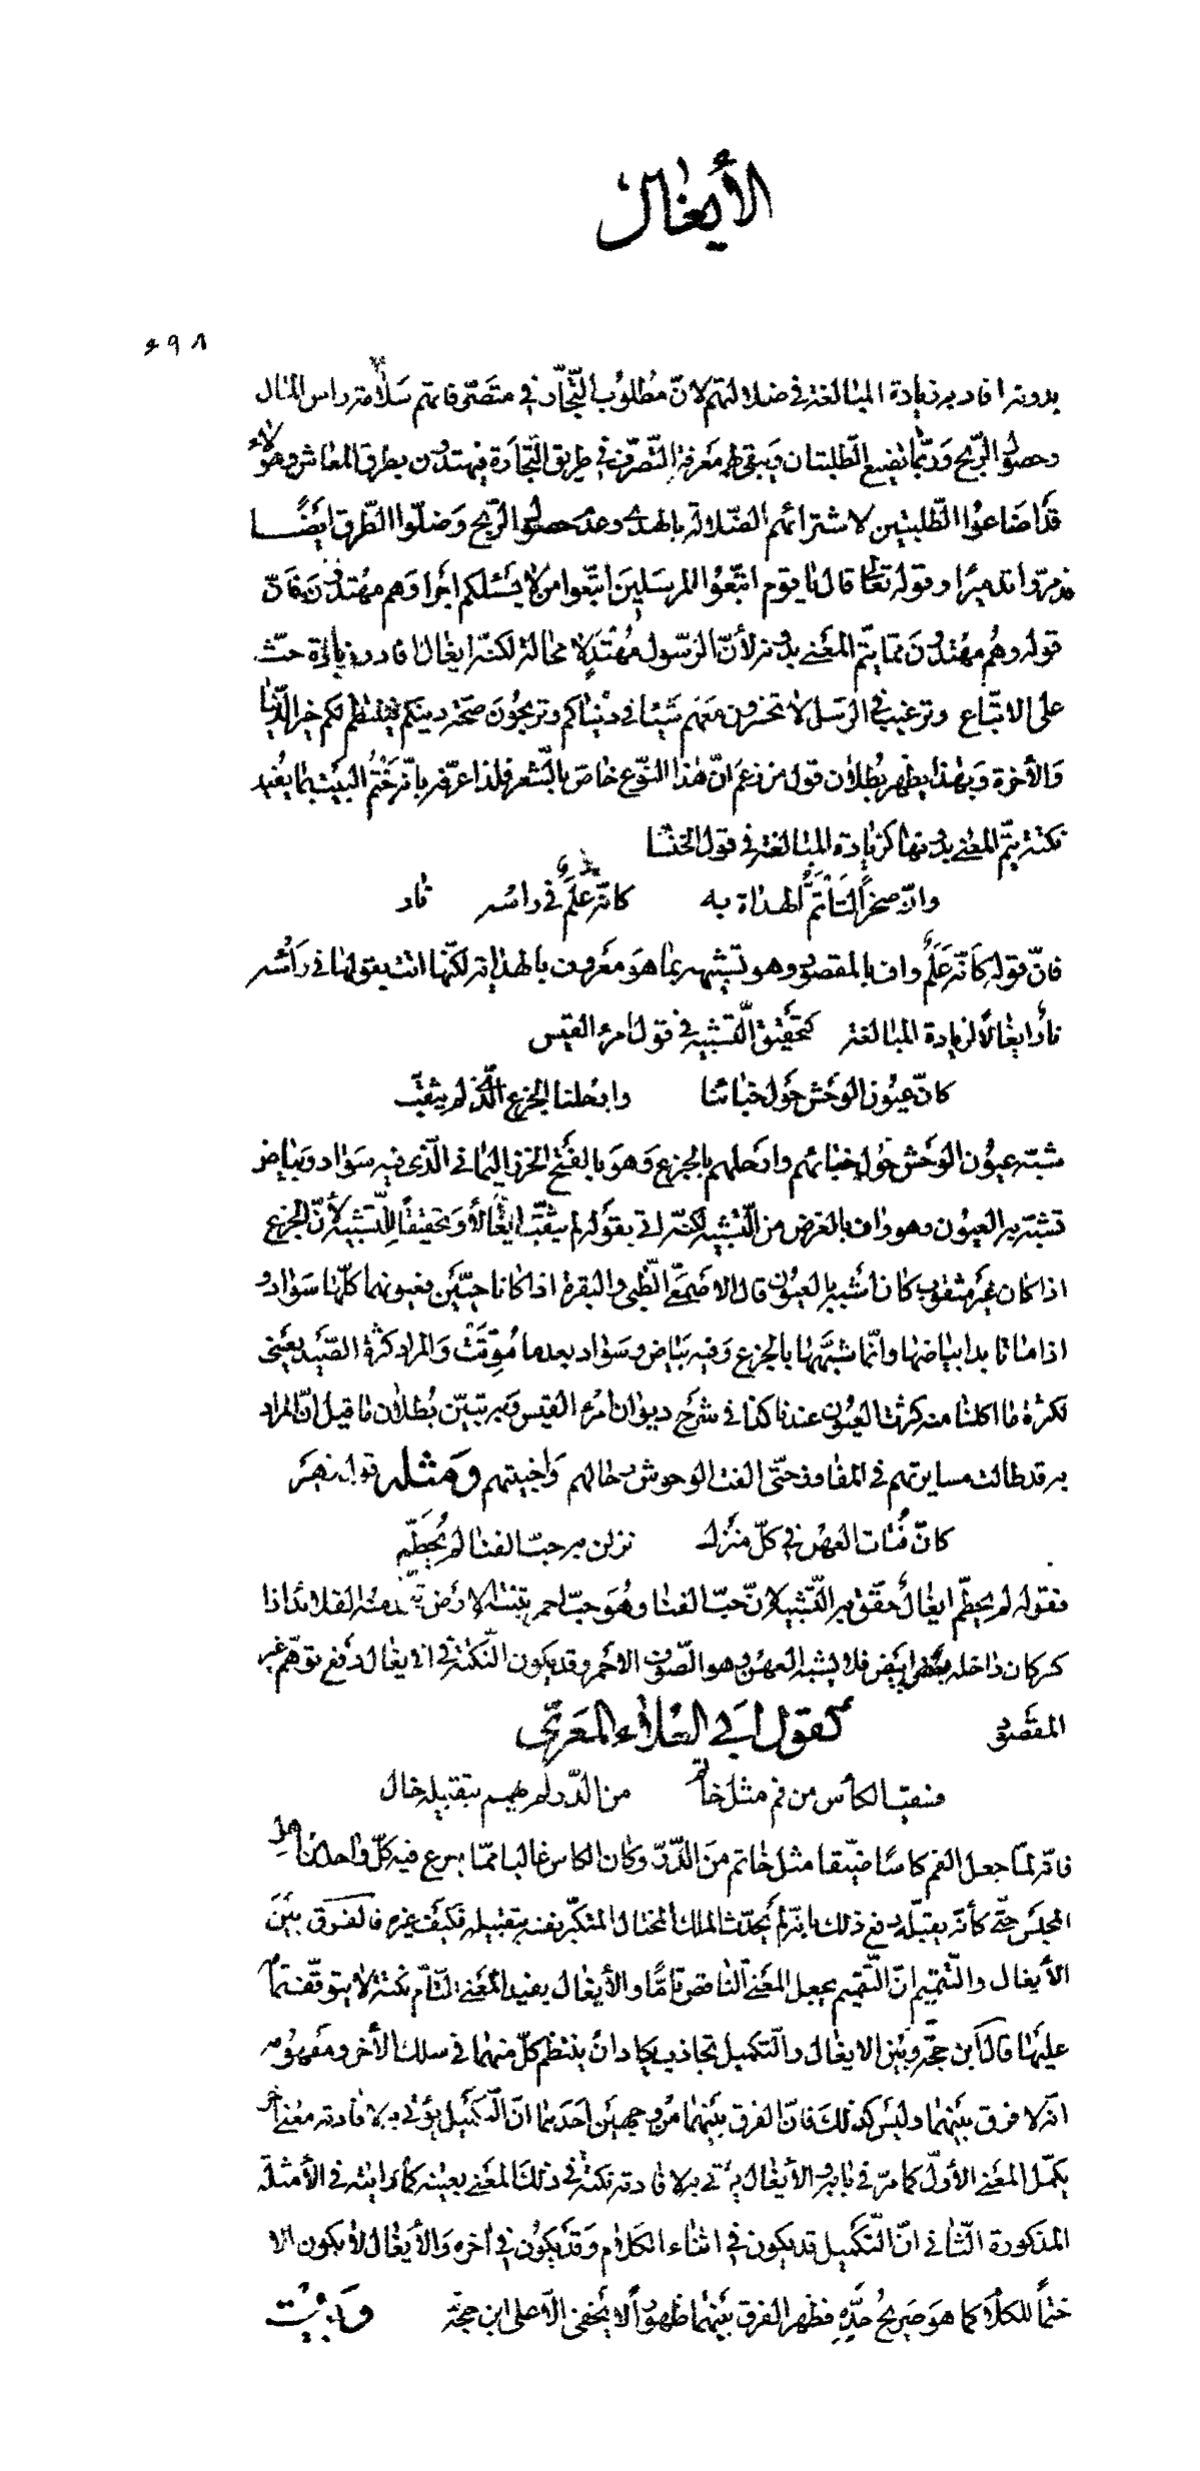 الأيغال
٤٩٨
بدونه افاد به زيادة المبالغة في ضلالتهم لانّ مطلوب التّجّار في متصرّفاتهم سلامة راس المال
وحصول الرّبح وربّما تضيع الطّلبتان ويبقى لهم معرفة التّصرّف في طريق التّجارة فيهتدون بطرق المعاش وهؤلاء
قد اضاعوا الطّلبتين لاشترائهم الضّلالة بالهدى وعدم حصول الرّبح وضلّوا الطّرق ايضًا
فدمّروا تدميرا وقوله تعالى قال يا قوم اتّبعوا المرسلين اتّبعوا من لا يسئلكم اجرا وهم مهتدون فانّ
قوله وهم مهتدون ممّا يتمّ المعنى بدونه لأنّ الرّسول مهتد لا محالة لكنّه ايغال افاد زيادة حثّ
على الاتّباع وترغيب في الرّسل لا تخسرون معهم شيئا في دنياكم وتربحون صحّة دينكم فينتظم لكم خير الدّنيا
والأخرة وبهذا يظهر بطلان قول من زعم انّ هذا النّوع خاصّ بالشّعر فلذا عرّفه بانّه ختم البيت بما يفيد
نكتة يتمّ المعنى بدونها كزيادة المبالغة في قول الخنسا
وانّ صخرًا لتأتمّ الهداة به كانّه علم في رأسه نار
فانّ قوله كأنّه علم واف بالمقصود وهو تشبيهه بما هو معروف بالهداية لكنّها اتت بقولها في رأسه
نار ايغالًا لزيادة المبالغة كتحقيق التّشبيه في قول امرء القيس
كانّ عيون الوحش حول خبائنا وارحلنا الجزع الّذي لم يثقّب
شبّه عيون الوحش حول خبائهم وارحلهم بالجزع وهو بالفتح الخرز اليماني الّذي فيه سواد وبياض
تشبّه به العيون وهو واف بالغرض من التّشبيه لكنّه اتى بقوله لم يثقّب ايغالًا وتحقيقًا للتّشبيه لأنّ الجزع
اذا كان غير مثقوب كان اشبه بالعيون قال الاصمعيّ الظّبي والبقرة اذا كانا حيّين فعيونهما كلّها سواد و
اذا ماتا بدا بياضها وانّما شبّهها بالجزع وفيه بياض وسواد بعد ما موّتت والمراد كثرة الصّيد يعني
لكثرة ما اكلنا منه كثرت العيون عندنا كذا في شرح ديوان امرء القيس وبه تبيّن بطلان ما قيل انّ المراد
به قد طالت مسايرتهم في المفاوز حتّى الفت الوحوش رحالهم واخبيتهم ومثله قول زهير
كانّ فتات العهن في كلّ منزل نزلن به حبّ الفنا لم يحطّم
فقوله لم يحطّم ايغال حقّق به التّشبيه لانّ حبّ الفنا وهو حبّ احمر تنبته الارض منه القلائد اذا
كسر كان داخله ابيض فلا يشبه العهن وهو الصّوف الاحمر وقد يكون النّكتة في الايغال دفع توهّم غير
المقصود كقول ابي العلاء المعرّي
فسقيا لكأس من فم مثل خاتم من الدّر لم يهمم بتقبيله خال
فانّه لمّا جعل الفم كاسًا ضيّقا مثل خاتم من الدّرّ وكان الكاس غالبا ممّا يكرع فيه كلّ واحد من اهل
المجلس حتّى كأنّه يقبّله دفع ذلك بانّه لم يحدّث الملك المختال المتكبّر نفسه بتقبيله فكيف غيره فالفرق بين
الأيغال والتّتميم انّ التّتميم يجعل المعنى النّاقص تامًّا والأيغال يفيد المعنى التّامّ نكتة لا يتوقّف تمامه
عليها قال ابن حجّة وبين الايغال والتّكميل تجاذب يكاد انّ ينتظم كلّ منهما في سلك الأخر ومفهومه
انّه لا فرق بينهما وليس كذلك فانّ الفرق بينهما من وجهين احدهما انّ التّكميل يؤتى به لافادته معنى اخر
يكمّل المعنى الأوّل كما مرّ في بابه والأيغال يؤتى به لافادته نكتة في ذلك المعنى بعينه كما رايته في الأمثلة
المذكورة الثّاني انّ التّكميل قد يكون في اثناء الكلام وقد يكون في اخره والأيغال لا يكون الا
ختمًا للكلام كما هو صريح حدّه فظهر الفرق بينهما ظهورًا لا يخفى الّا على ابن حجّة وبيت